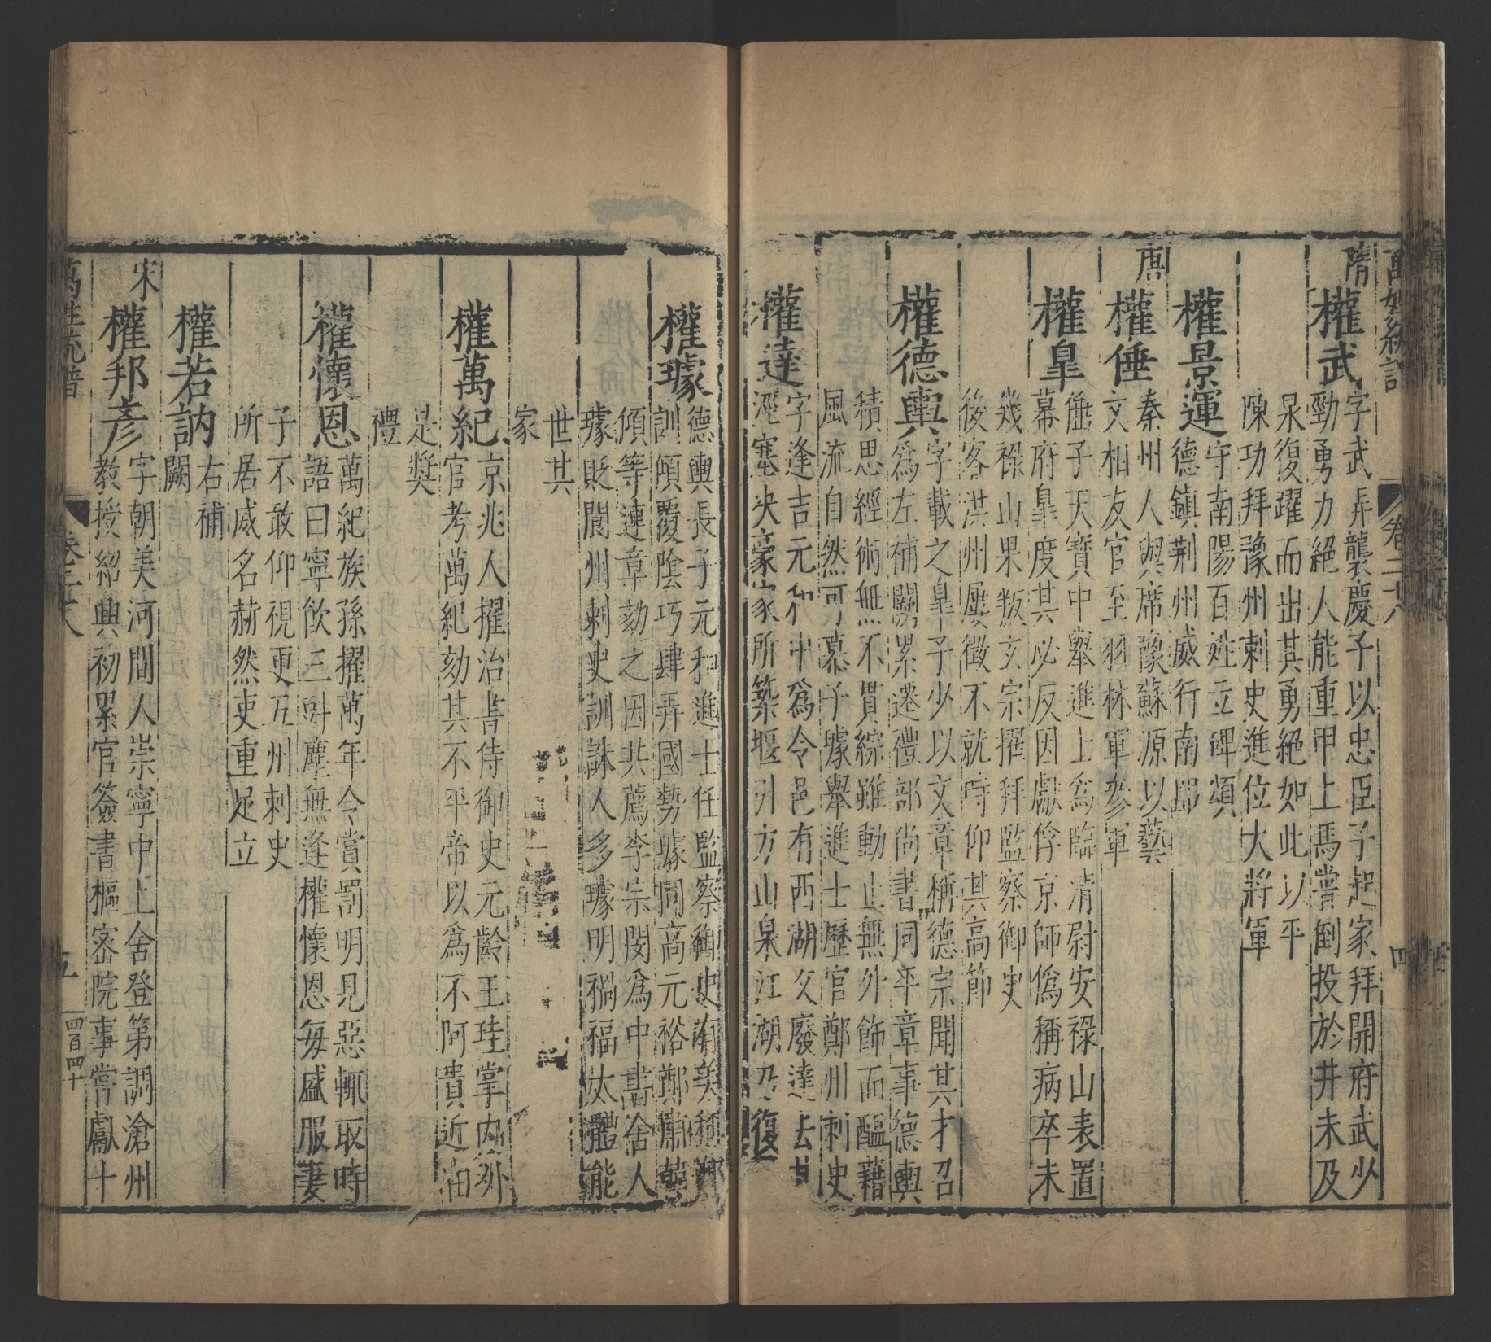 萬姓統譜
卷二十八
四
隋
權武
字武弄襲慶子以忠臣子起家拜開府武少
勁勇力絕人能重甲上馬嘗倒投於井未及
泉復躍而出其勇絕如此以平
陳功拜豫州刺史進位大將軍
權景運
守南陽百姓立碑頌
德鎮荆州威行南鄙
唐
權倕
秦州人與席豫蘇源以藝
文相友官至羽林軍參軍
權皐
倕子天寶中舉進士為臨清尉安祿山表置
幕府皐度其必反因獻俘京師偽稱病卒未
幾祿山果叛玄宗擢拜監察御史
後客洪州屢徵不就時仰其高節
權德輿
字載之皐子少以文章稱德宗聞其才召
為左補闕累遷禮部尚書同平章事德輿
積思經術無不貫綜雖動止無外飾而醞藉
風流自然可慕子璩舉進士歷官鄭州刺史
權達
字逢吉元和中為令邑有西湖久廢達去
湮塞決豪家所築堰引方山泉江湖乃復
權璩
德輿長子元和進士任監察御史
訓傾覆陰巧肆弄國勢璩同高元裕鄭肅韓
傾等連章劾之因共薦李宗閔為中書舍人
璩貶閬州刺史訓誅人多璩明禍福大體能
世其
家
權萬紀
京兆人擢治書侍御史元齡王珪掌內外
官考萬紀劾其不平帝以為不阿貴近由
是獎
禮
權懷恩
萬紀族孫擢萬年令賞罰明見惡輒取時
語曰寧飲三斗塵無逢權懷恩每盛服妻
子不敢仰視更五州刺史
所居威名赫然吏重足立
權若訥
右補
闕
宋
權邦彥
字朝美河間人崇寧中上舍登第調滄州
教授紹興初累官簽書樞密院事嘗獻十
萬姓統譜
卷二十八
五
四百四十